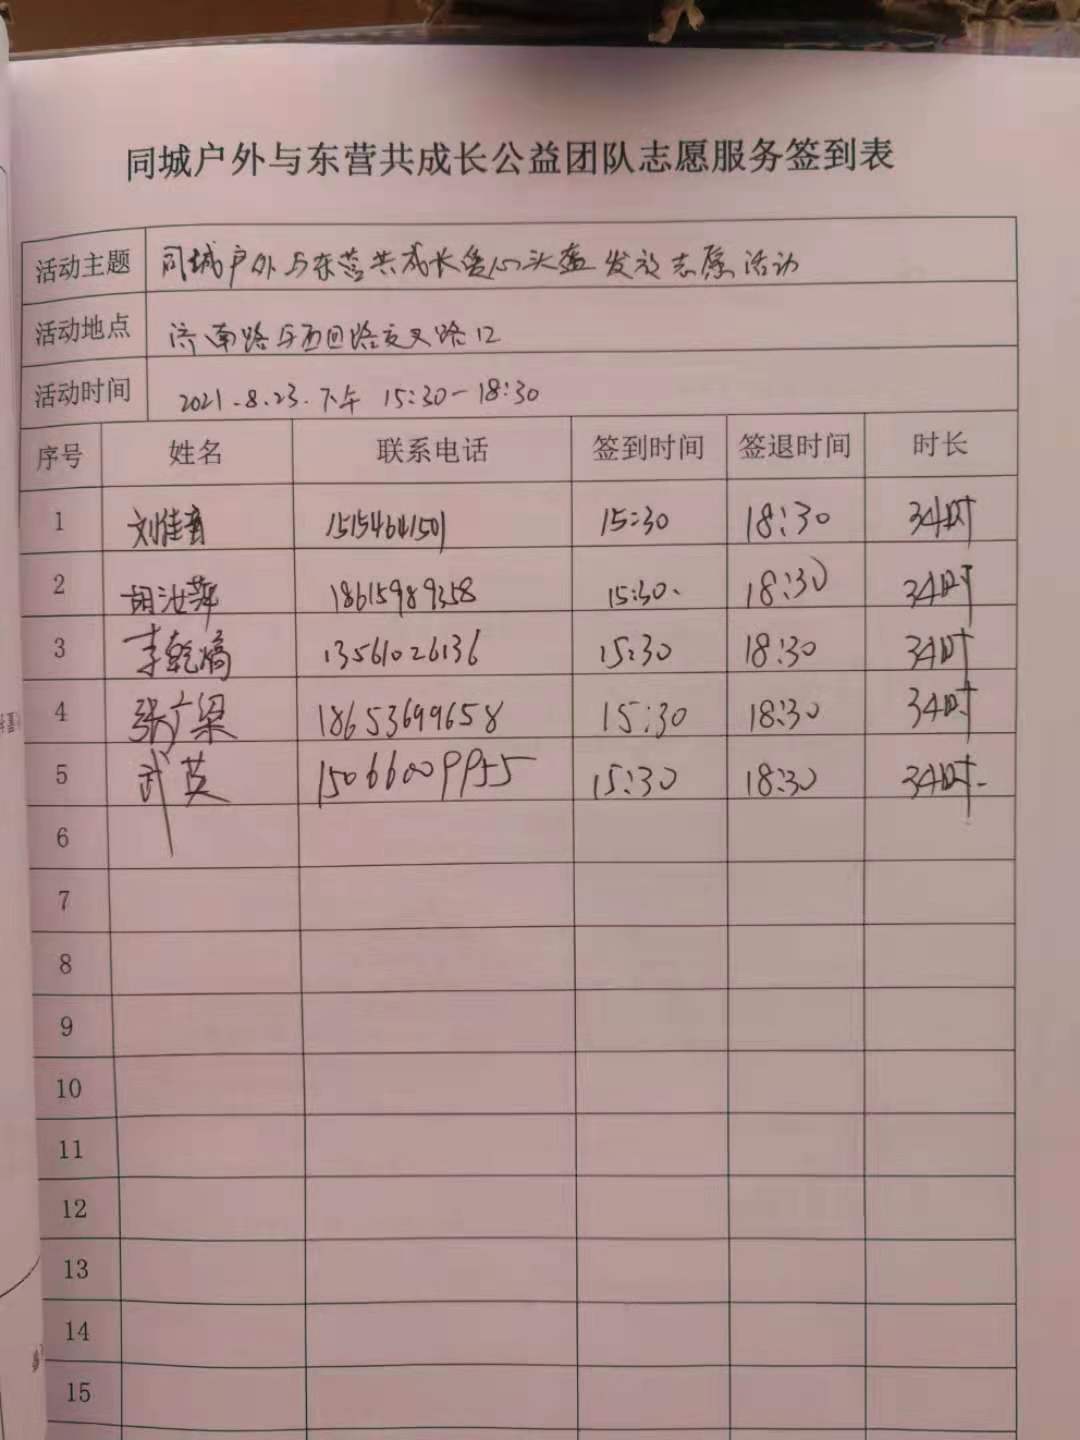 同城户外与东营共成长公益团队志愿服务签到表
活动主题 同城户外与东营共成长爱心头盔发放志愿活动
活动地点 济南路与西四路交叉路口
活动时间 2021.8.23.下午 15:30-18:30
序号 姓名 联系电话 签到时间 签退时间 时长
1 刘佳音 15154641501 15:30 18:30 3小时
2 胡汝萍 18615989358 15:30. 18:30 3小时
3 李乾 13561026136 15:30 18:30 3小时
4 张广梁 18653699658 15:30 18:30 3小时
5 武英 15066009955 15:30 18:30 3小时.
6
7
8
9
10
11
12
13
14
15